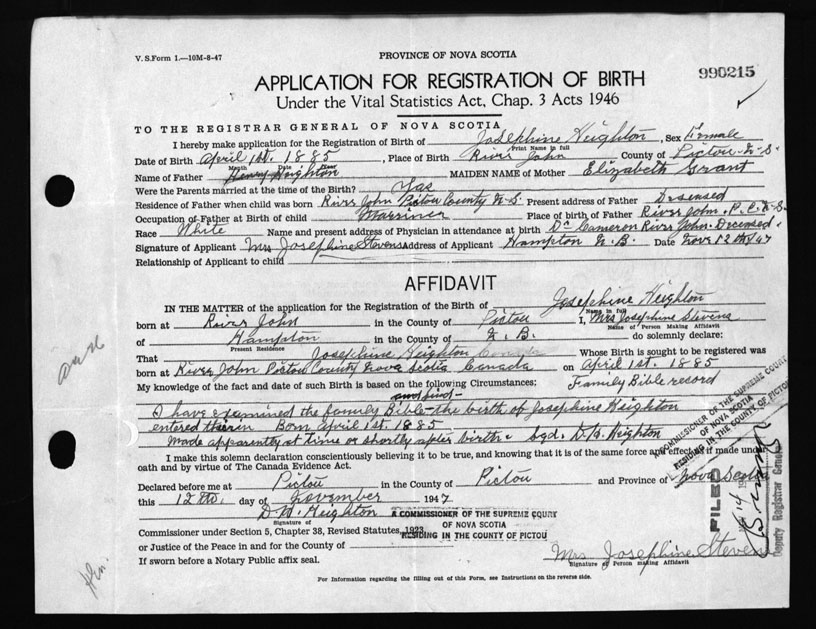 V. S. Form 1.—10M-8-47
PROVINCE OF NOVA SCOTIA
990215
APPLICATION FOR REGISTRATION OF BIRTH
Under the Vital Statistics Act, Chap. 3 Acts 1946
TO THE REGISTRAR GENERAL OF NOVA SCOTIA
I hereby make application for Registration of Birth of Josephine Heighton, Sex Female
Print Name in full
Date of Birth April 1st. 1885, Place of Birth River John County of Pictou N.S.
Month Day Year
Name of Father Henry Heighton MAIDEN NAME of Mother Elizabeth Grant
Were the Parents married at the time of Birth? Yas
Residence of Father when child was born River John Pictou County N.S. Present address of Father Deceased
Occupation of Father at Birth of child Marriner Place of birth of Father River John. P.C. N.S.
Race White Name and present address of Physician in attendance at birth Dr Cameron River John. Deceased.
Signature of Applicant Mrs Josephine Stevens Address of Applicant Hampton N.B. Date Nov. 12th 1947
Relationship of Applicant to child
AFFIDAVIT
IN THE MATTER of the application for the Registration of the Birth of Josephine Heighton
Name in full
born at River John in the County of Pictou I, Mrs Josephine Stevens
Name of Person Making Affidavit
of Hampton in the County of N.B. do solemnly declare:
Present Residence
That Josephine Heighton Canada Whose Birth is sought to be registered was
born at River John Pictou County Nova Scotia Canada on April 1st. 1885
My knowledge of the fact and date of such Birth is based on the following Circumstances: Family Bible record
I have examined the family Bible - the birth of Josephine Heighton
entered therein Born April 1st. 1885
Made apparently at time or shortly after birth. sgd. D.H. Heighton
I make this solemn declaration conscientiously believing it to be true, and knowing that it is of the same force and effect as if made under
oath and by virtue of The Canada Evidence Act.
Declared before me at Pictou in the County of Pictou and Province of Nova Scotia
this 12th. day of November 1947
D.H. Heighton
Signature of
A COMMISSIONER OF THE SUPREME COURT
OF NOVA SCOTIA
RESIDING IN THE COUNTY OF PICTOU
Commissioner under Section 5, Chapter 38, Revised Statutes, 1923
or Justice of the Peace in and for the County of
If sworn before a Notary Public affix seal.
Mrs Josephine Stevens
Signature of Person making Affidavit
For Information regarding the filling out of this Form, see Instructions on the reverse side.
A COMMISSIONER OF THE SUPREME COURT
OF NOVA SCOTIA
RESIDING IN THE COUNTY OF PICTOU
FILED
Deputy Registrar General